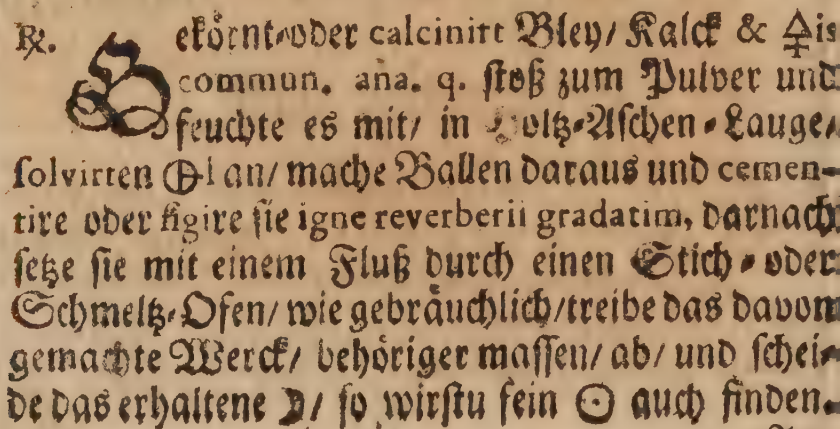 ℞. Gekörnt-oder calcinirt Bley/ Kalck & 🜍is
commun. ana. q. stoß zum Pulver und
feuchte es mit/ in Holtz-Aschen-Lauge/
solvirten 🜨l an/ mache Ballen daraus und cemen-
tire oder figire sie igne reverberii gradatim, darnach
setze sie mit einem Fluß durch einen Stich-oder
Schmeltz-Ofen/ wie gebräuchlich/treibe das davon
gemachte Werck/ behöriger massen/ ab/ und schei-
de das erhaltene ☽/ so wirstu fein ☉ auch finden.